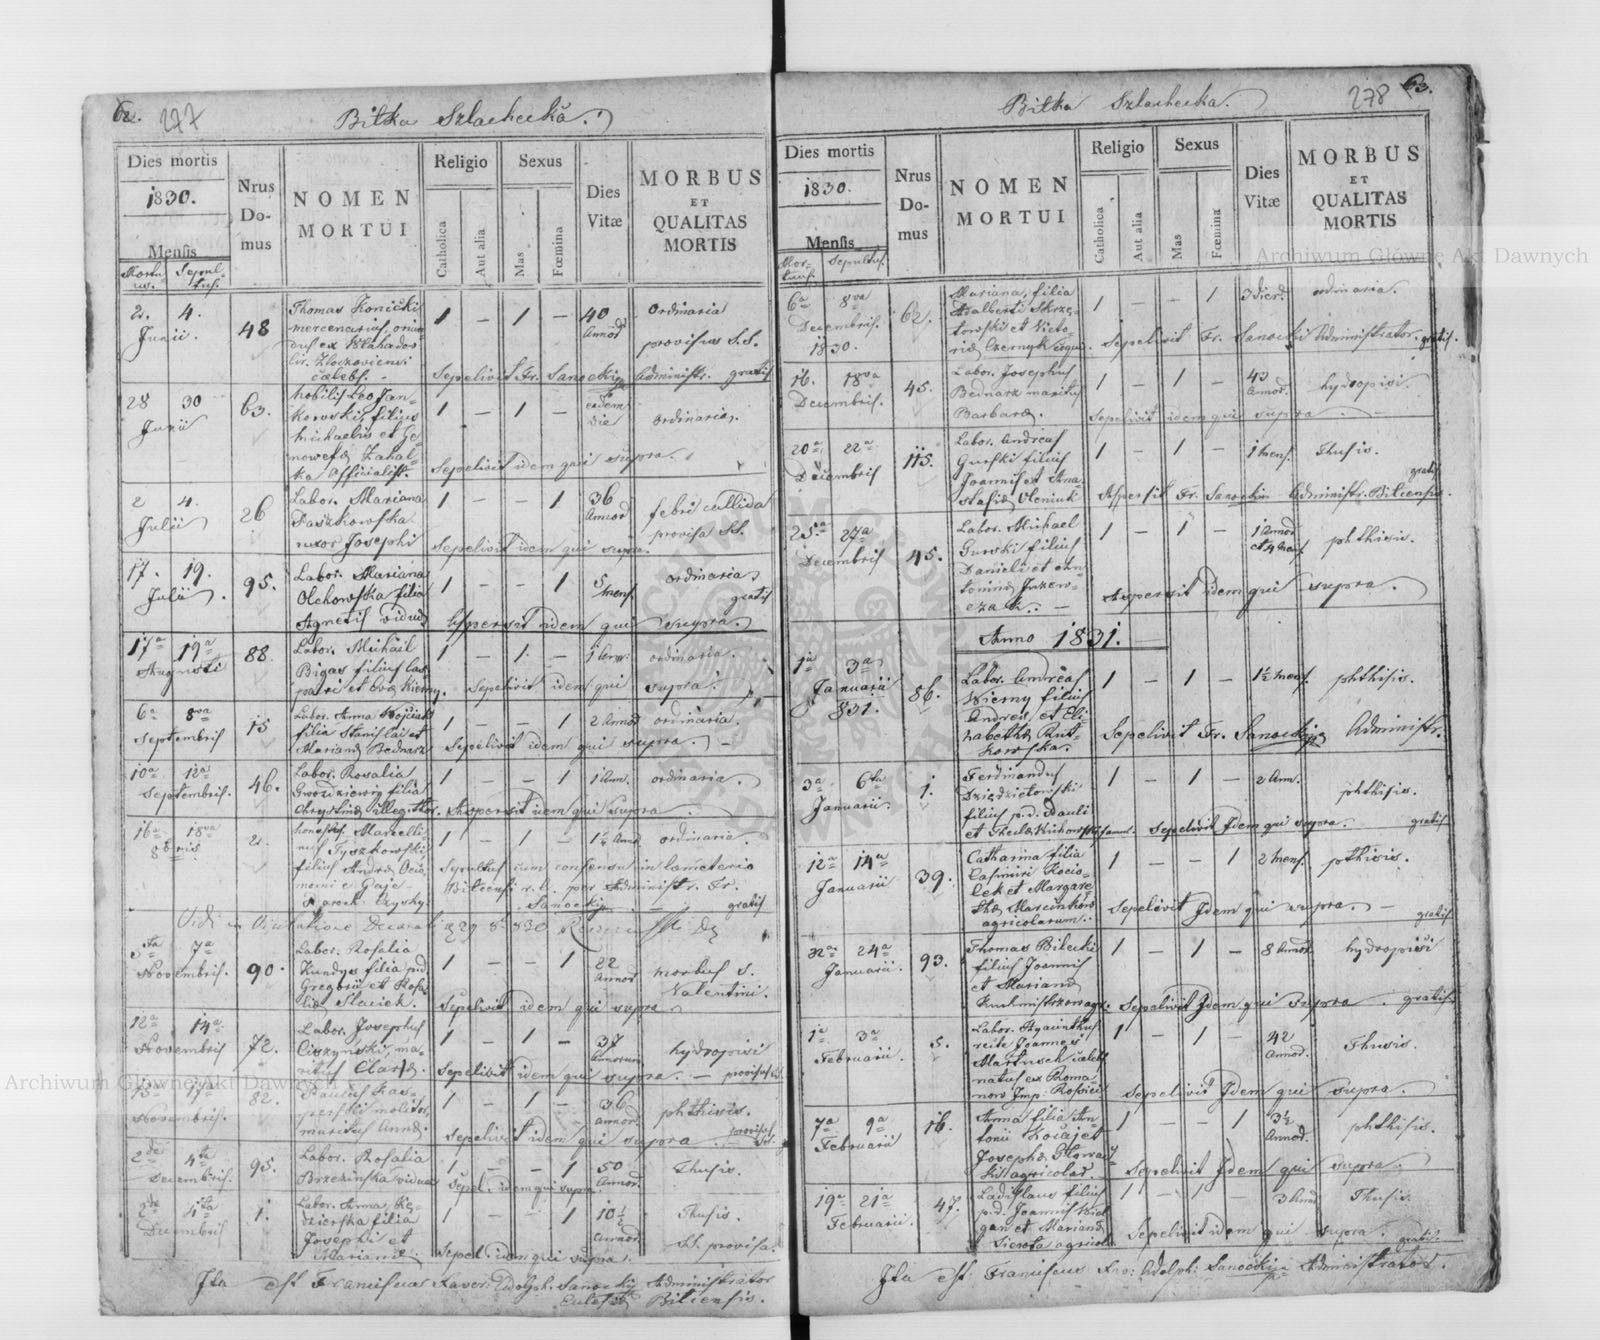 62. 277
Bilka Szlachecka.
Dies mortis
1830.
Mensis
Nrus Domus
NOMEN MORTUI
Religio
Catholica
Aut alia
Sexus
Mas
Fœmina
Dies Vitæ
MORBUS ET QUALITAS MORTIS
2. 4. Junii. 48
Thomas
mercenarius, oriun-
dus ex
cælebs.
1 – 1 – 40 Annor
ordinaria
provisus S.S.
Sepelivit Fr. Sanocki Administr. gratis
28 30 Junii 63.
Nobilis Leo Jan-
kowski, filius
Michaelis et Ge-
nowefæ Zahal-
ka officialist.
1 – 1 – eadem die
ordinaria.
Sepelivit idem qui supra.
2 4. Julii 26
Labor. Mariana
Paszkowska
uxor Josephi
1 – – 1 36 Annor
febri callida
provisa SS.
Sepelivit idem qui supra.
17. 19. Julii. 95.
Labor. Mariana
Olchowska filia
Agnetis viduæ
1 – – 1 5 mens.
ordinaria
gratis
Aspersit idem qui supra.
17a 19a Augusti 88.
Labor. Michael
Bigas filius Cas-
pari et Evæ Kierny.
1 – 1 –
ordinaria.
Sepelivit idem qui supra.
6a 8va Septembris 15
Labor. Anna Wojciak
filia Stanislai et
Marianæ Bednarz
1 – – 1 2 Annor
ordinaria.
Sepelivit idem qui supra. –
10a 12a Septembris. 46.
Labor. Rosalia
Gwozdziewicz filia
Christinæ illegithor.
1 – – 1 1 Ann.
ordinaria.
Aspersit idem qui supra
16a 18va 8bris 2.
honestus Marcelli-
nus Tyszkowski
filius Andreæ
1 – 1 – 1½ Ann
ordinaria.
Sepultus cum consensu in cæmeterio
Bilcensi r. l. per Administr. Fr.
Sanocki gratis
5ta 7a Novembris. 90.
Labor. Rosalia
Kundys filia p.d.
Gregorii et Rosa-
liæ Slaciek.
1 – – 1 22 Annor
morbus S. Valentini.
Sepelivit idem qui supra
12a 14a Novembris 72.
Labor. Josephus
Ciszynski, ma-
ritus Claræ.
1 – 1 – 37 Annorum
hydropisi
Sepelivit idem qui supra. –
15 17a Novembris. 82.
Paulus Kas-
perski molitor
maritus Annæ.
1 – 1 – 36 Annor.
phthisis.
Sepelivit idem qui supra
2da 4ta Decembris. 95.
Labor. Rosalia
Brzezinska vidua
1 – – 1 50 Annor.
Thusis.
Sepel. idem qui supra
2da 4ta Decembris 1.
Labor. Anna Kę-
dzierska filia
Josephi et
Marianæ.
1 – – 1 10½ Annor.
Thusis.
SS. provisa.
Sepel. idem qui supra.
Ita est Franciscus Xaver. Adolph. Sanocki Administrator
Ecclesiæ Bilcensis.
278 63.
Bilka Szlachecka.
Dies mortis
1830.
Mensis
Nrus Domus
NOMEN MORTUI
Religio
Catholica
Aut alia
Sexus
Mas
Fœmina
Dies Vitæ
MORBUS ET QUALITAS MORTIS
6a 8va Decembris. 1830. 62.
Mariana, filia
Adalberti Skrzę-
towski et Victo-
riæ Czernyk
1 – – 1 3 dier.
ordinaria.
Sepelivit Fr. Sanocki Administrator. gratis.
16. 18va Decembris. 45.
Labor. Josephus
Bednarz maritus
Barbaræ.
1 – 1 – 43 Annor.
hydropisi.
Sepelivit idem qui supra
20a 22a Decembris 115.
Labor. Andreas
Gurski filius
Joannis et Ana-
stasiæ Oleniuk
1 – 1 – 1 mens.
Thusis.
gratis
Aspersit Fr. Sanocki Administr. Bilcensis.
25a 27a Decembris 45.
Labor. Michael
Gurski filius
Danieli et An-
toninæ
1 – 1 – 1 Annor et 4 mens
phthisis.
Aspersit idem qui supra.
Anno 1831.
1a 3a Januarii 831. 86.
Labor. Andreas
Wierny filius
Andreæ et Eli-
zabethæ Rut-
kowska.
1 – 1 – 1½ mens.
phthisis.
Sepelivit Fr. Sanocki Administr.
3a 6ta Januarii. 1.
Ferdinandus
Dziędzielowski
filius p.d. Pauli
1 – 1 – 2 Ann.
phthisis.
Sepelivit Idem qui supra. gratis
12a 14a Januarii 39.
Catharina filia
Casimiri Kocio-
lek et Margare-
thæ Marcinków
agricolarum.
1 – – 1 2 mens.
pthisis.
Sepelivit Idem qui supra. – gratis
22a 24a Januarii. 93.
Thomas Bilecki
filius Joannis
et Marianæ
1 – 1 – 8 Annor
hydropisi
Sepelivit Idem qui supra. gratis.
1a 3a Februarii. 5.
Labor. Hyacinthus
recte Joannes
Martusch cæleb
natus ex Roma
now Imp: Rossici
1 – 1 – 42 Annor.
Thusis.
Sepelivit Idem qui supra.
7a 9a Februarii 16.
Anna filia An-
tonii Kocaj et
Josephæ Glowac-
ki agricolar.
1 – – 1 3½ Annor.
phthisis.
Sepelivit Idem qui supra.
19a 21a Februarii. 47.
Ladislaus filius
p.d. Joannis
et Marianæ
Sierota agricol.
1 – 1 –
Thusis.
Sepelivit idem qui supra. gratis
Ita est Franciscus Xav: Adolph: Sanocki Administrator.
Archiwum Główne Akt Dawnych
Archiwum Główne Akt Dawnych